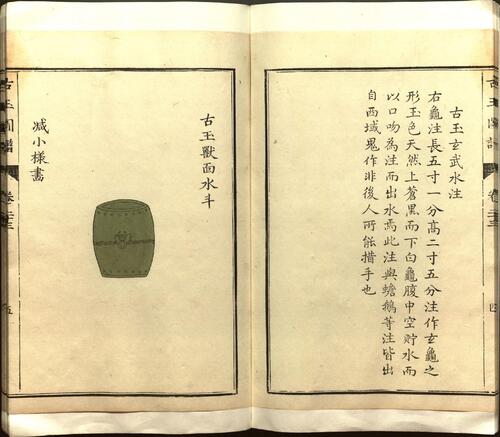 古玉圖譜
四
古玉玄武水注
右龜注長五寸一分高二寸五分注作玄龜之
形玉色天然上蒼黑而下白龜腹中空貯水而
以口吻為注而出水焉此注與蟾鵝等注皆出
自西域鬼作非後人所能措手也
古玉獸面水斗
減小樣畫
古玉圖譜
五